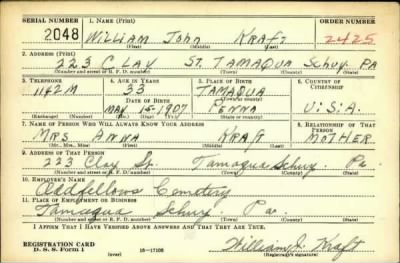 SERIAL NUMBER 1. NAME (Print) ORDER NUMBER
2048 William John Kraft 2425
(First) (Middle) (Last)
2. ADDRESS (Print)
223 CLAY ST. TAMAQUA Schuy. PA
(Number and street or R. F. D. number) (Town) (County) (State)
3. TELEPHONE 4. AGE IN YEARS 5. PLACE OF BIRTH 6. COUNTRY OF CITIZENSHIP
1142M 33 TAMAQUA
DATE OF BIRTH (Town or county)
MAY 15-1907 PENNA U.S.A.
(Mo.) (Day) (Yr.) (State or country)
7. NAME OF PERSON WHO WILL ALWAYS KNOW YOUR ADDRESS 8. RELATIONSHIP OF THAT PERSON
MRS. ANNA Kraft MOTHER
(Mr., Mrs., Miss) (First) (Middle) (Last)
9. ADDRESS OF THAT PERSON
223 Clay St. Tamaqua Schuy. Pa.
(Number and street or R. F. D. number) (Town) (County) (State)
10. EMPLOYER'S NAME
Oddfellows Cemetery
11. PLACE OF EMPLOYMENT OR BUSINESS
Tamaqua Schuy. Pa.
(Number and street or R. F. D. number) (Town) (County) (State)
I AFFIRM THAT I HAVE VERIFIED ABOVE ANSWERS AND THAT THEY ARE TRUE.
REGISTRATION CARD
D. S. S. Form 1 (over) William J. Kraft
(Registrant's signature)